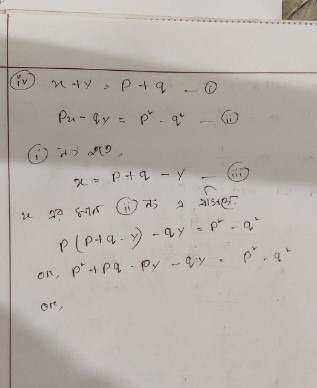 (iv) x + y = p + q — (i)
px - qy = p² - q² — (ii)
(i) নং হতে,
x = p + q - y — (iii)
x এর মান (ii) নং এ বসাই,
p(p+q-y) - qy = p² - q²
or, p² + pq - py - qy = p² - q²
or,